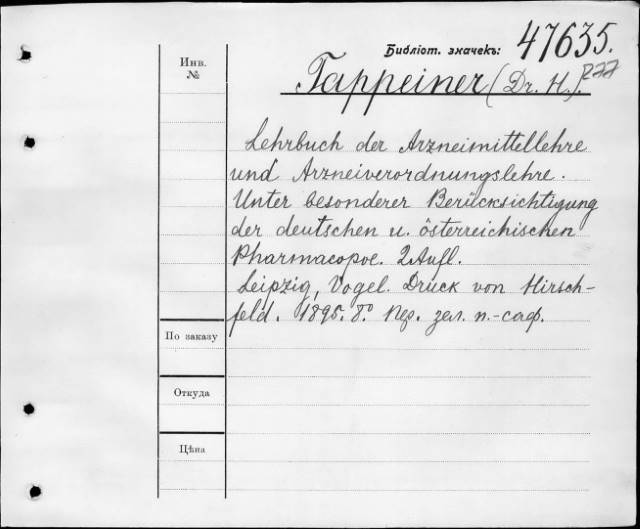 Библіот. значекъ: 47635.
Инв. №
Tappeiner (Dr. H.).
Lehrbuch der Arzneimittellehre
und Arzneiverordnungslehre.
Unter besonderer Berücksichtigung
der deutschen u. österreichischen
Pharmacopoe. 2 Aufl.
Leipzig, Vogel. Druck von Hirsch-
feld. 1895. 8° Пер. зел. п.-саф.
По заказу
Откуда
Цѣна